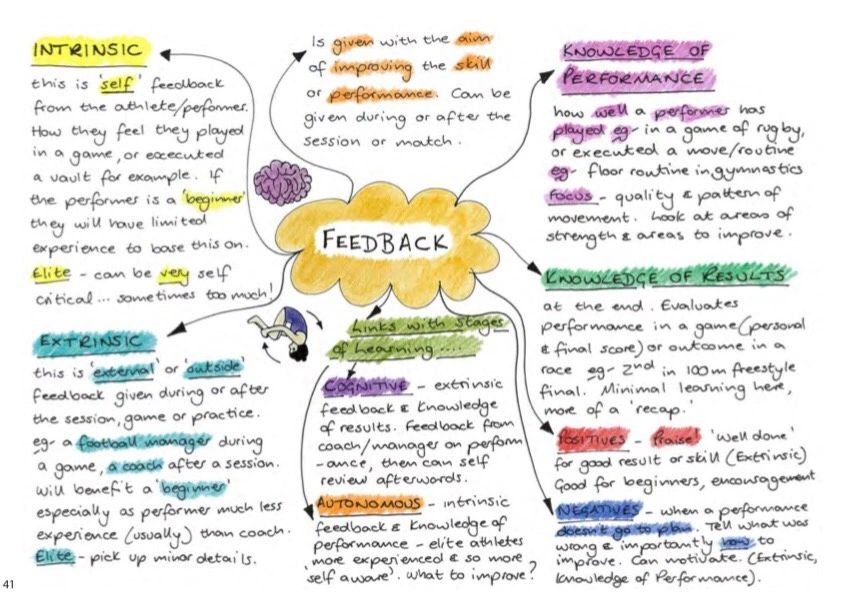 INTRINSIC
this is 'self' feedback
from the athlete/peformer.
How they feel they played
in a game, or excecuted
a vault for example. If
the performer is a 'beginner'
they will have limited
experience to base this on.
Elite - can be very self
critical... sometimes too much!
Is given with the aim
of improving the skill
or performance. Can be
given during or after the
session or match.
KNOWLEDGE OF
PERFORMANCE
how well a performer has
played eg- in a game of rugby,
or executed a move/routine
eg- floor routine in gymnastics
Focus - quality & pattern of
movement. Look at areas of
strength & areas to improve.
FEEDBACK
KNOWLEDGE OF RESULTS
at the end. Evaluates
performance in a game (personal
& final score) or outcome in a
race eg- 2nd in 100m freestyle
final. Minimal learning here,
more of a 'recap.'
EXTRINSIC
this is 'external' or 'outside'
feedback given during or after
the session, game or practice.
eg- a football manager during
a game, a coach after a session.
Will benefit a 'beginner'
especially as performer much less
experience (usually) than coach.
Elite - pick up minor details.
Links with stages
of learning....
COGNITIVE - extrinsic
feedback & knowledge
of results. Feedback from
coach/manager on perform
-ance, then can self
review afterwards.
AUTONOMOUS - intrinsic
feedback & knowledge of
performance - elite athletes
more experienced & so more
'self aware'. What to improve?
POSITIVES - Praise! 'Well done'
for good result or skill (Extrinsic)
Good for beginners, encouragement
NEGATIVES - when a performance
doesn't go to plan. Tell what was
wrong & importantly how to
improve. Can motivate. (Extrinsic,
Knowledge of Performance).
41